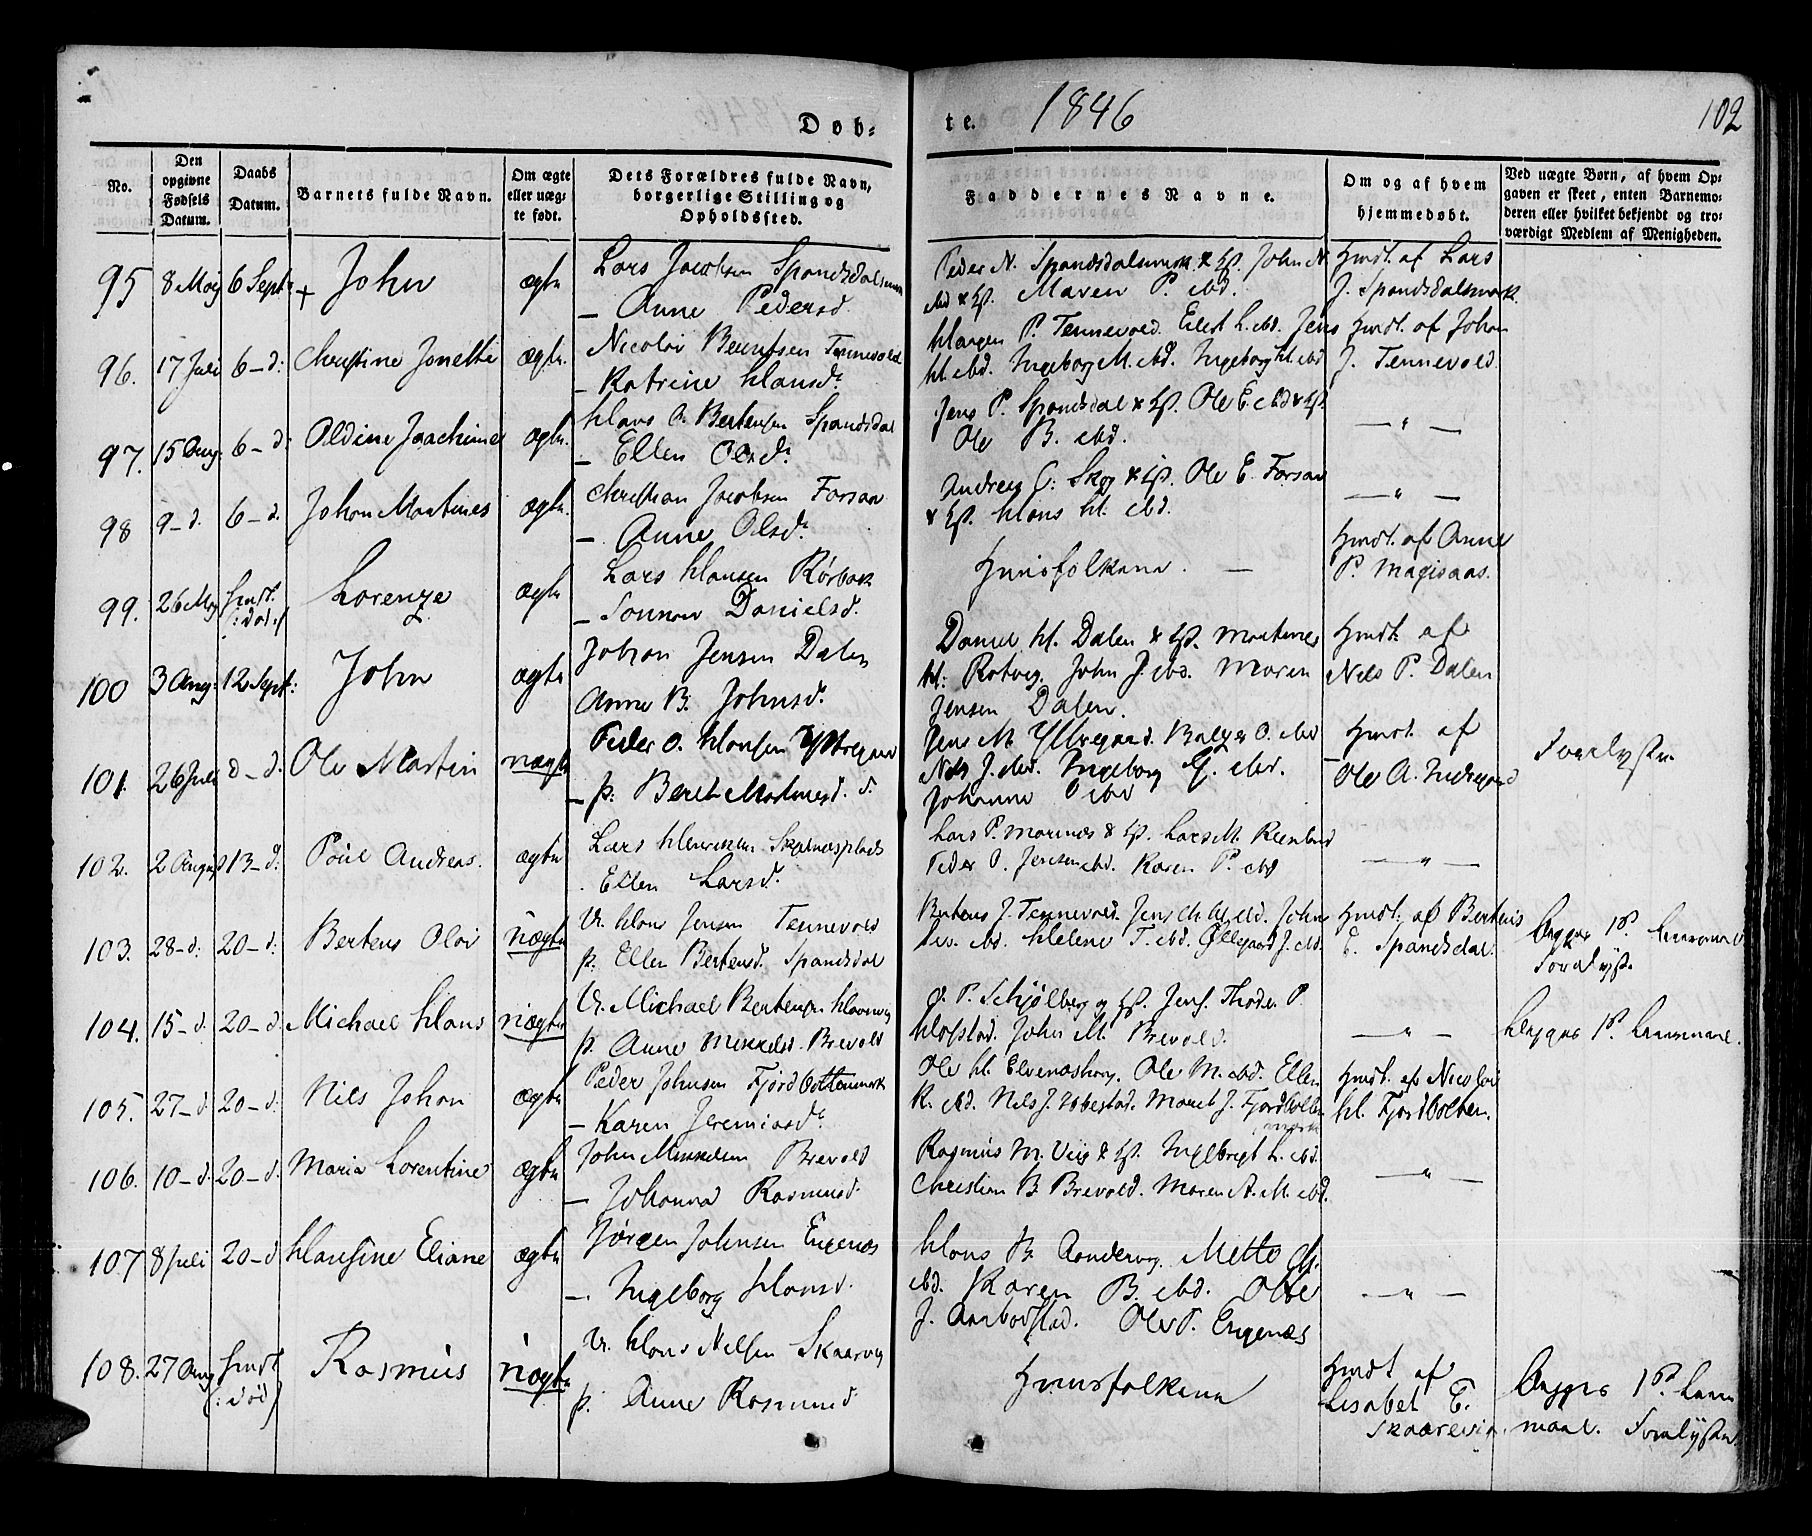 1846
102
Døb-
te.
No.
Den opgivne Fødsels Datum.
Daabs Datum.
Barnets fulde Navn.
Om ægte eller uægte født.
Dets Forældres fulde Navn, borgerlige Stilling og Opholdssted.
Faddernes Navne.
Om og af hvem hjemmedøbt.
Ved uægte Børn, af hvem Opgaven er skeet, enten Barnemoderen eller hvilket bekjendt og troværdigt Medlem af Menigheden.
95 8 May 6 Sept: + John ægte
Lars Jacobsen Spandsdalsmark
– Anne Pedersd.
Peder N. Spandsdalsmark & H. John N.
ibd & H. Maren P. ibd.
Hmdt. af Lars
J. Spandsdalsmark.
96. 17 Juli 6 – d: Christine Jonette ægte
Nicolai Berntsen Tennevold
– Katrine Hansd.
Hangen P. Tennevold. Eilert L. ibd. Jens
H. ibd. Ingeborg M. ibd. Ingeborg H. ibd
Hmdt. af Johan
J. Tennevold.
97. 15 Aug: 6 – d: Oldine Joachime ægte.
Hans A. Bertensen Spandsdal
– Ellen Olsd.
Jens P. Spandsdal & H. Ole E. ibd & H.
Ole B. ibd.
— " —
98 9 – d. 6 – d. Johan Martines ægte.
Christian Jacobsen Forsaa
– Anne Olsd.
Andreas C: Skog & H. Ole E. Forsaa
& H. Hans H. ibd.
— " —
99. 26 May Hmdt. (: død :) Lorenze ægte
Lars Hansen Rørbak
– Danielsd.
Huusfolkene. —
Hmdt. af Anne
P. Magisaas.
100 3 Aug: 12 Sept: John ægte
Johan Jensen Dalen
Anne B. Johnsd.
Daniel H. Dalen & H. Martines
H: Rotvig. John J. ibd. Maren
Jensen Dalen.
Hmdt. af
Nils P. Dalen
101. 26 Juli d – d. Ole Martin uægte
Peder O. Hansen Yttregaard
– p: Berit Mortensd.
Jens M. Yttregaard. O. ibd
Nils J. ibd. Ingeborg G. ibd.
Johanna O ibd
Hmdt. af
Ole A. Indregaard
102. 2 August 13 – d: Poul Andreas. ægte
Lars Henriksen Skolnesplads
. Ellen Larsd.
Lars P. Marinæs & H. Lars M.
Peder O. Jensen ibd. Karen P. ibd
— " —
103. 28 – d: 20 – d: Bertens Olai uægte
U. Hans Jensen Tennevold
p. Ellen Bertensd. Spandsdal
Bertens J. Tennevold. Jens A. ibd. John
ibd. Helene T. ibd. Øllegaard J. ibd.
Hmdt. af Bertens
E. Spandsdal.
Begges 1ste Leiermaal
104. 15 – d. 20 – d: Michael Hans uægte
U. Michael Bertensen Havnvig
p. Anne Mikkelsd. Brevold
P. Schjølberg og H. Jens. Thode P.
Hofstad. John M. Brevold.
— " —
Begges 1ste Leiermaal.
105. 27 – d. 20 – d: Nils Johan ægte
Peder Johnsen Fjordbottenmark
– Karen Jeremiasd.
Ole H. Elvenæshoug. Ole M. ibd. Ellen
K. ibd. Nils J. Tobestad. Maret J. Fjordbotten
mark
Hmdt. af Nicolai
H. Fjordbotten.
106. 10 – d. 20 – d: Maria Lorentine ægte
John Mikkelsen Brevold
– Johanna Rasmusd.
Rasmus M. Viig & H. Ingebrigt L. ibd.
Christian B Brevold. Maren A. M. ibd.
— " —
107 8 Juli 20 – d Hansine Eliane ægte
Jørgen Johnsen Engenæs
–. Ingeborg Hansd.
Hans B. Mette
ibd. Karen B. ibd. Ole
J. Aarbodstad. Ole P. Engenæs
— " —
108. 27 Aug Hmdt (: død) Rasmus uægte
U. Hans Nilsen Skaarvig
p. Anne Rasmusd
Huusfolkene
Hmdt af
Lisabet E.
Skaarvig.
Begges 1ste Leier
maal.